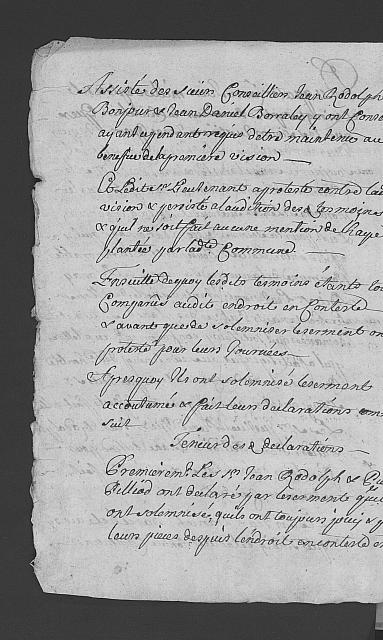 Assisté des sieurs Conseilliers Jean Rodolph
Bonjour & Jean Daniel Borraley y ont Conse
ayant cependant requis detre maintenu au
benefice de la premiere vision
Le Ledit Sr. Lieutenant a protesté contre lad
vision & persiste a laudition des temoins
& quil ne soit fait aucune mention de l haye
plantée par lad.e Commune
Ensuitte de quoy lesdits temoins étants to
Comparus audit endroit en Conteste
& avant que de solemniser le serment on
protesté pour leurs Journées
Apres quoy Ils ont solemnisé le serment
accoutumé & fait leurs declarations com
suit
Teneur des declarations
Premierem.t Les Srs. Jean Rodolph &
Gilliod ont declaré par le serment qu
ont solemnisé, quils ont toujours jouy & p
leurs pieces depuis lendroit en conteste